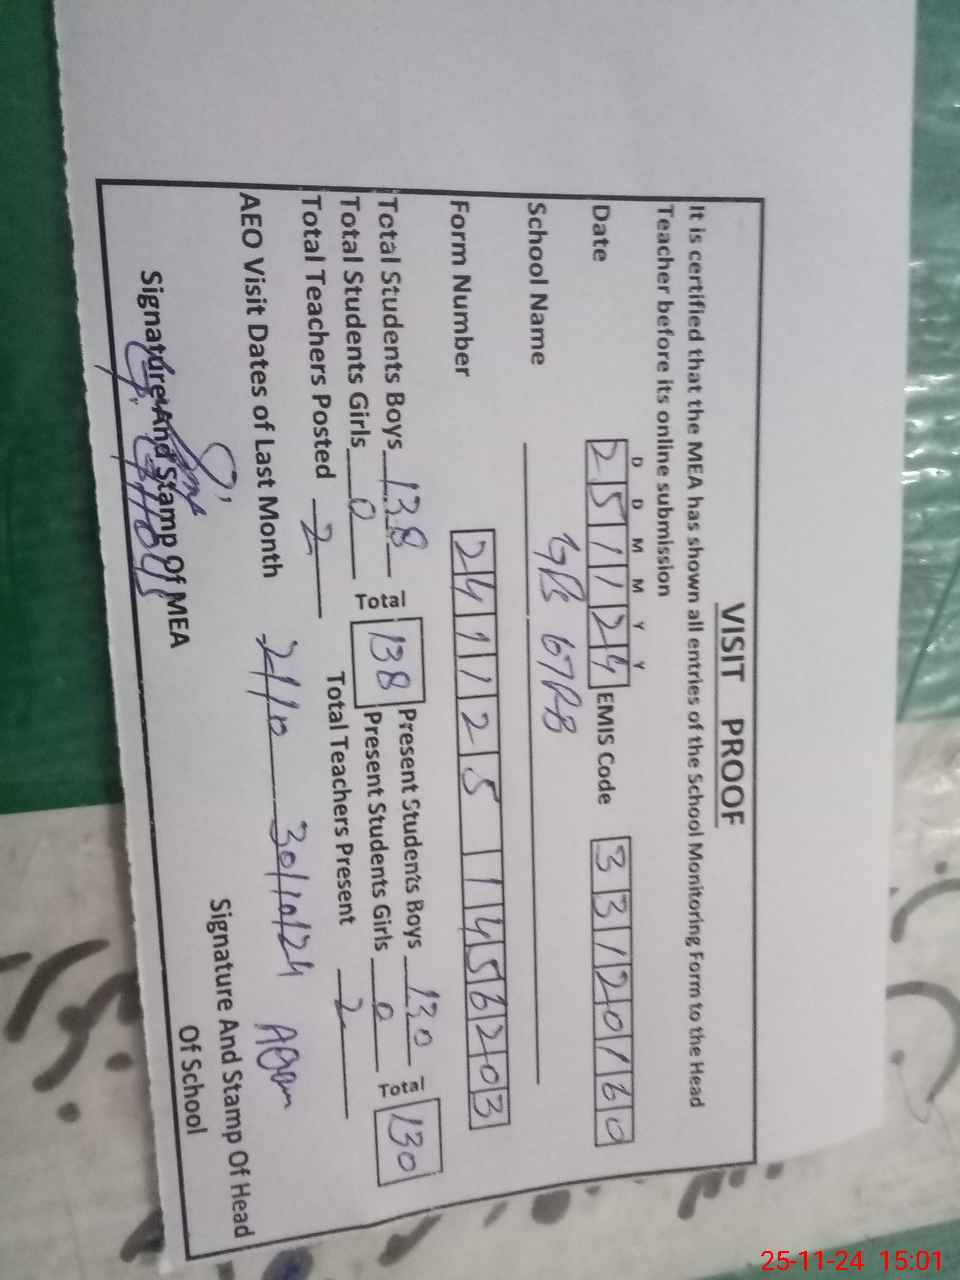 VISIT PROOF
It is certified that the MEA has shown all entries of the School Monitoring Form to the Head
Teacher before its online submission
D D M M Y Y
Date 251124 EMIS Code 33120160
School Name GPS 67RB
Form Number 241125 1456203
Total Students Boys 138 Total 138 Present Students Boys 130 Total 130
Total Students Girls 0 Present Students Girls 0
Total Teachers Posted 2 Total Teachers Present 2
AEO Visit Dates of Last Month 21/10 30/10/24
Signature And Stamp Of MEA
Signature And Stamp Of Head
Of School
25-11-24 15:01